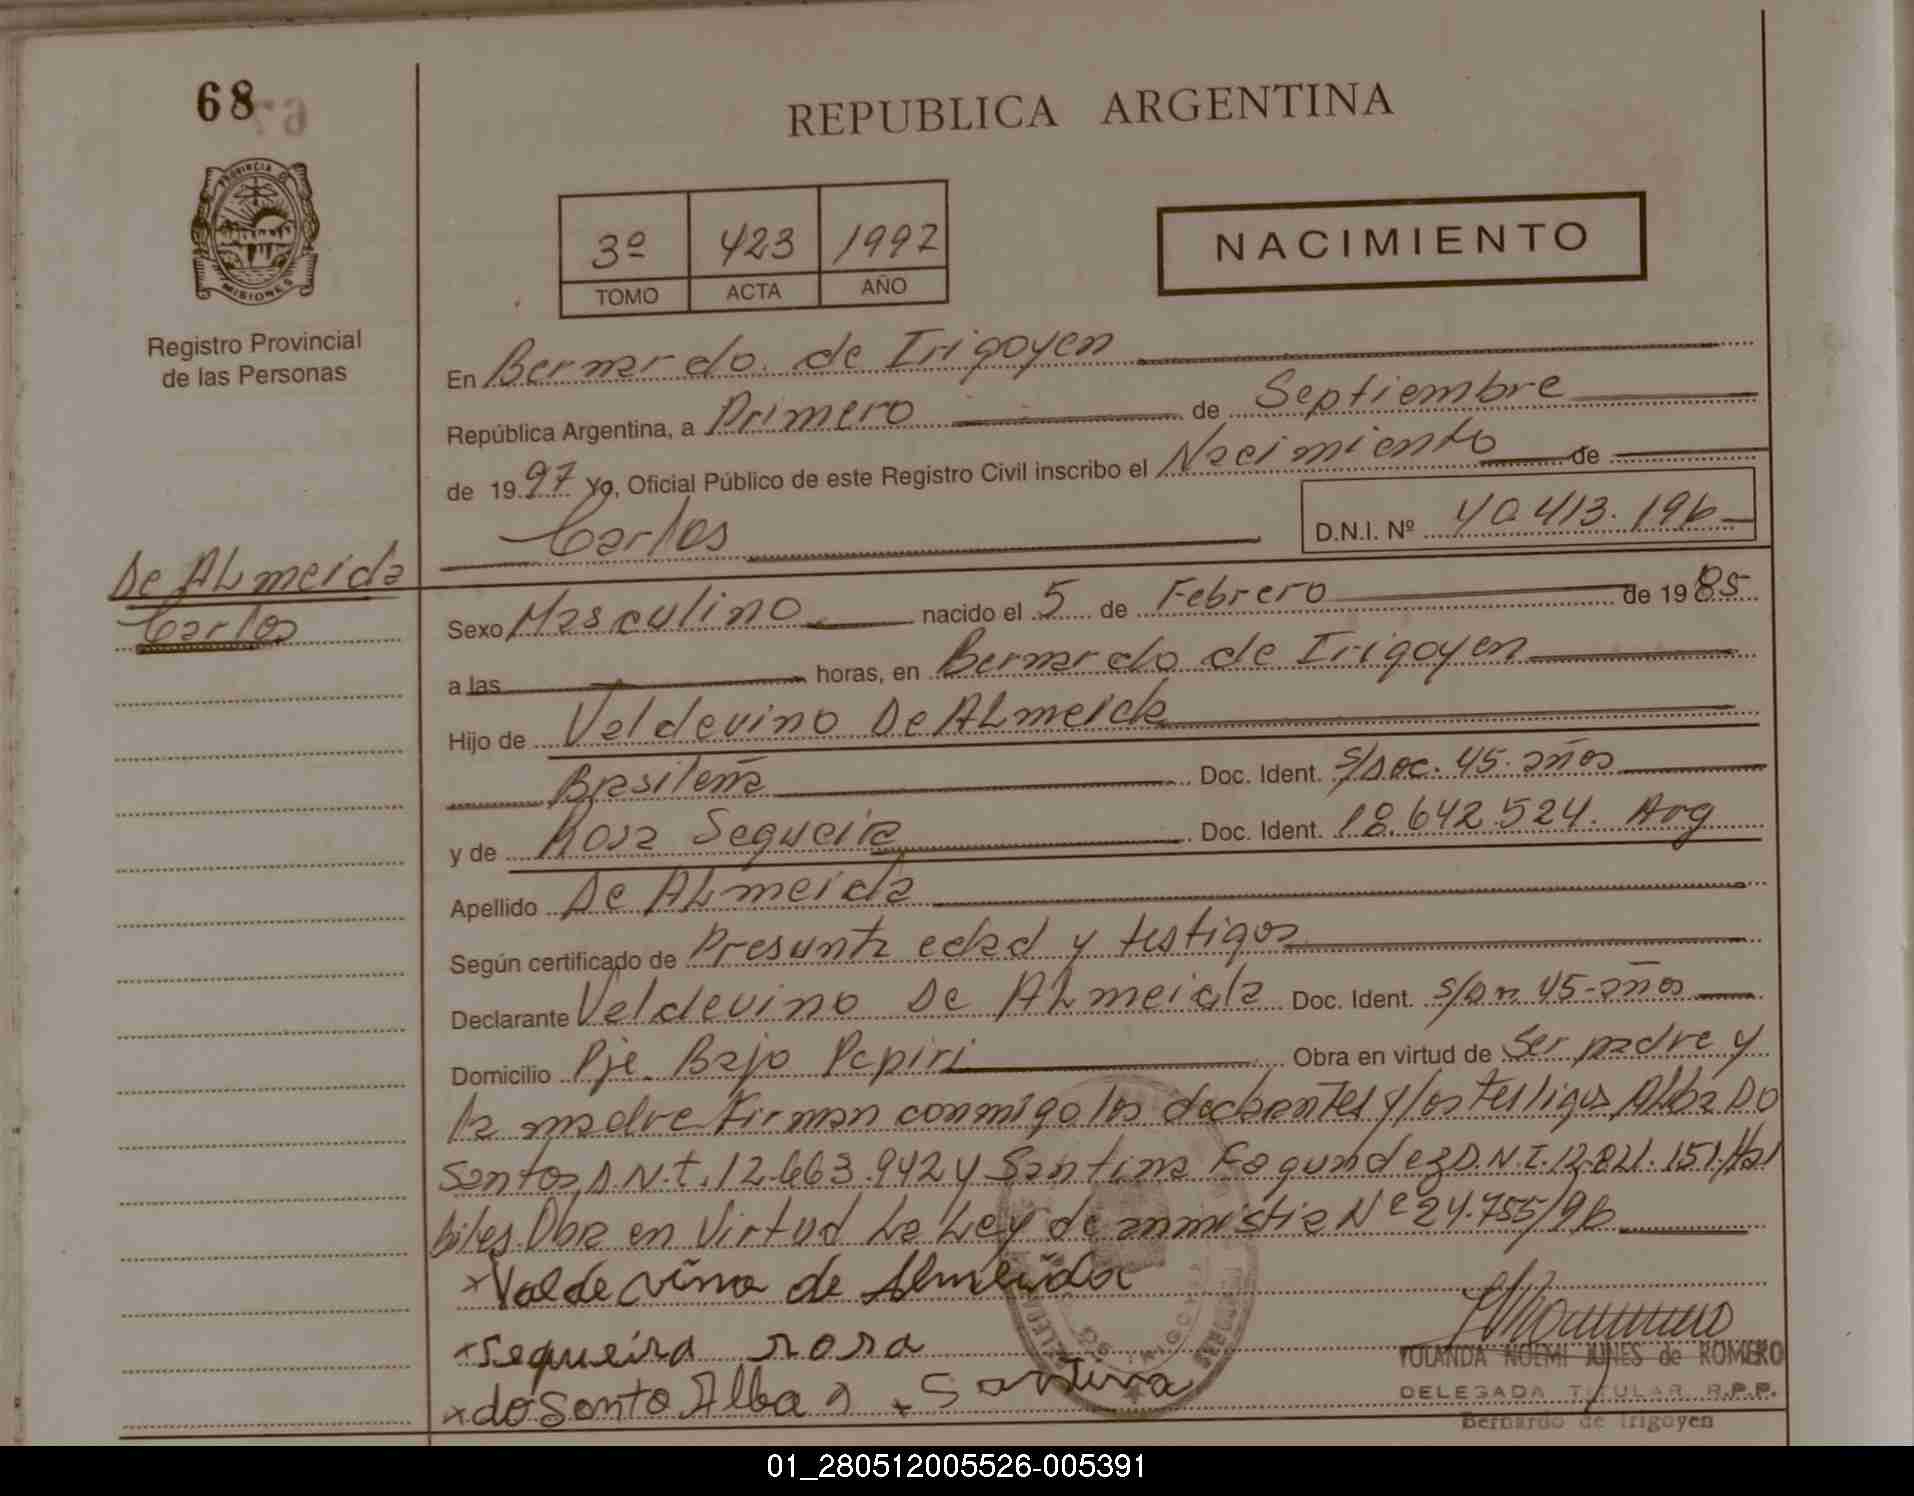 68
REPUBLICA ARGENTINA
PROVINCIA DE
MISIONES
Registro Provincial
de las Personas
3º 423 1992
TOMO ACTA AÑO
NACIMIENTO
En Bernardo de Irigoyen
República Argentina, a Primero de Septiembre
de 1997 Yo, Oficial Público de este Registro Civil inscribo el Nacimiento de
Carlos
D.N.I. Nº 40.413.196
De ALmeida
Carlos
Sexo Masculino nacido el 5 de Febrero de 1985
a las horas, en Bernardo de Irigoyen
Hijo de Valdevino De ALmeida
Brasileña Doc. Ident. s/Doc. 45 años
y de Rosa Sequeira Doc. Ident. 18.642.524. Arg
Apellido De ALmeida
Según certificado de Presunta edad y testigos
Declarante Valdevino De ALmeida Doc. Ident. 45-años
Domicilio Pje. Bajo Pepiri Obra en virtud de Ser padre y
la madre Firman conmigo los declarantes y los Testigos Alba Do
Santos D.N.I. 12.663.942 y Santina Fagundez D.N.I. 12.821.151. Ha
biles. Obra en Virtud La Ley de amnistia Nº 24.755/96
x Valdevino de Almeida
x Sequeira rosa
x do Santo Alba x Santina
YOLANDA NOEMI JUNES de ROMERO
DELEGADA TITULAR R.P.P.
Bernardo de Irigoyen
01_280512005526-005391